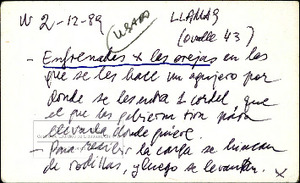 V 2-12-89 USADO LLAMAS
(ovalle 43)
- Enfrenadas x las orejas en las
que se les hace un agujero por
donde se les entra 1 cordel, que
el que las gobierna tira para
llevarla donde quiere.
- Para recibir la carga se hincan
de rodillas, y luego se levantan. x